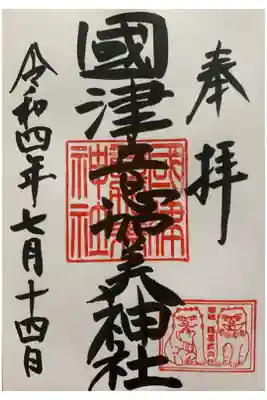 奉拝
國津意加美神社
令和四年七月十四日